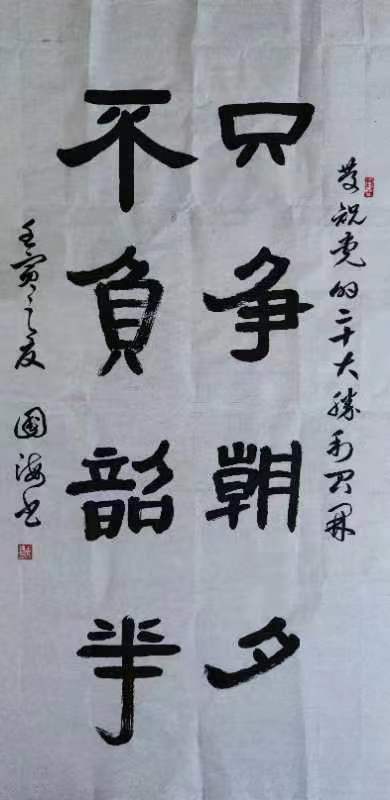 慶祝党的二十大勝利召開
只争朝夕
不負韶華
壬寅之夏 國海书